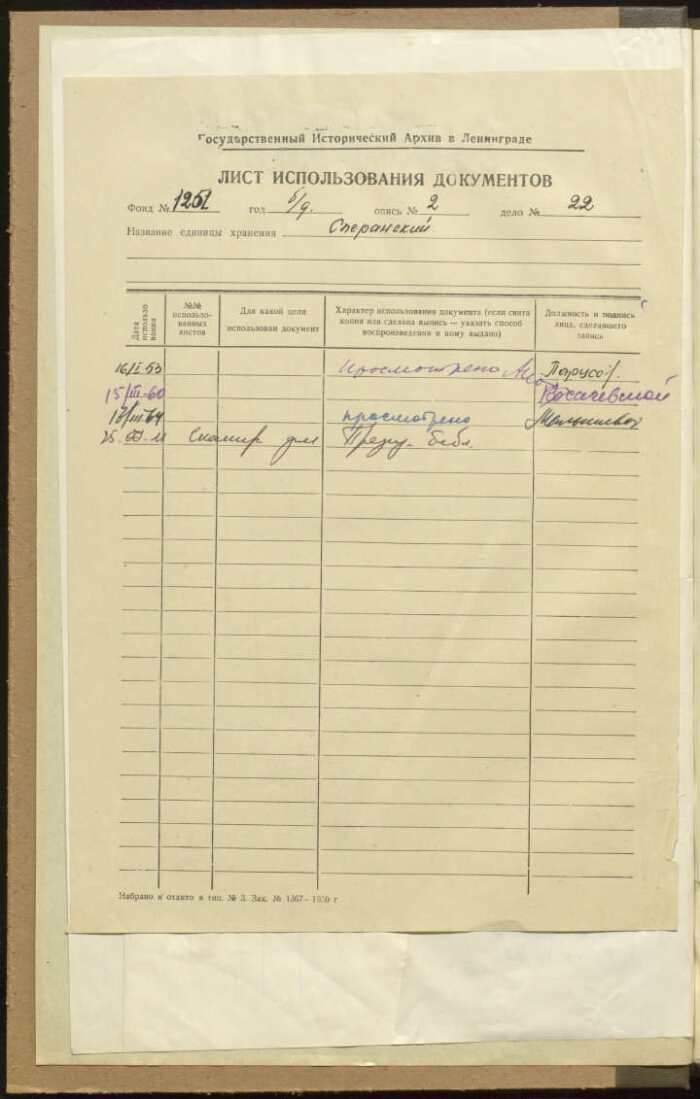 Государственный Исторический Архив в Ленинграде
ЛИСТ ИСПОЛЬЗОВАНИЯ ДОКУМЕНТОВ
Фонд № 1251 год б/д. опись № 2 дело № 22
Название единицы хранения Сперанский
Дата использования
№№ использованных листов
Для какой цели использован документ
Характер использования документа (если снята копия или сделана выпись — указать способ воспроизведения и кому выдано)
Должность и подпись лица, сделавшего запись
16/I-53 просмотрено
15/III-60
просмотрено
Сканир для През. библ.
Набрано и отлито в тип. № 3. Зак. № 1367—1959 г